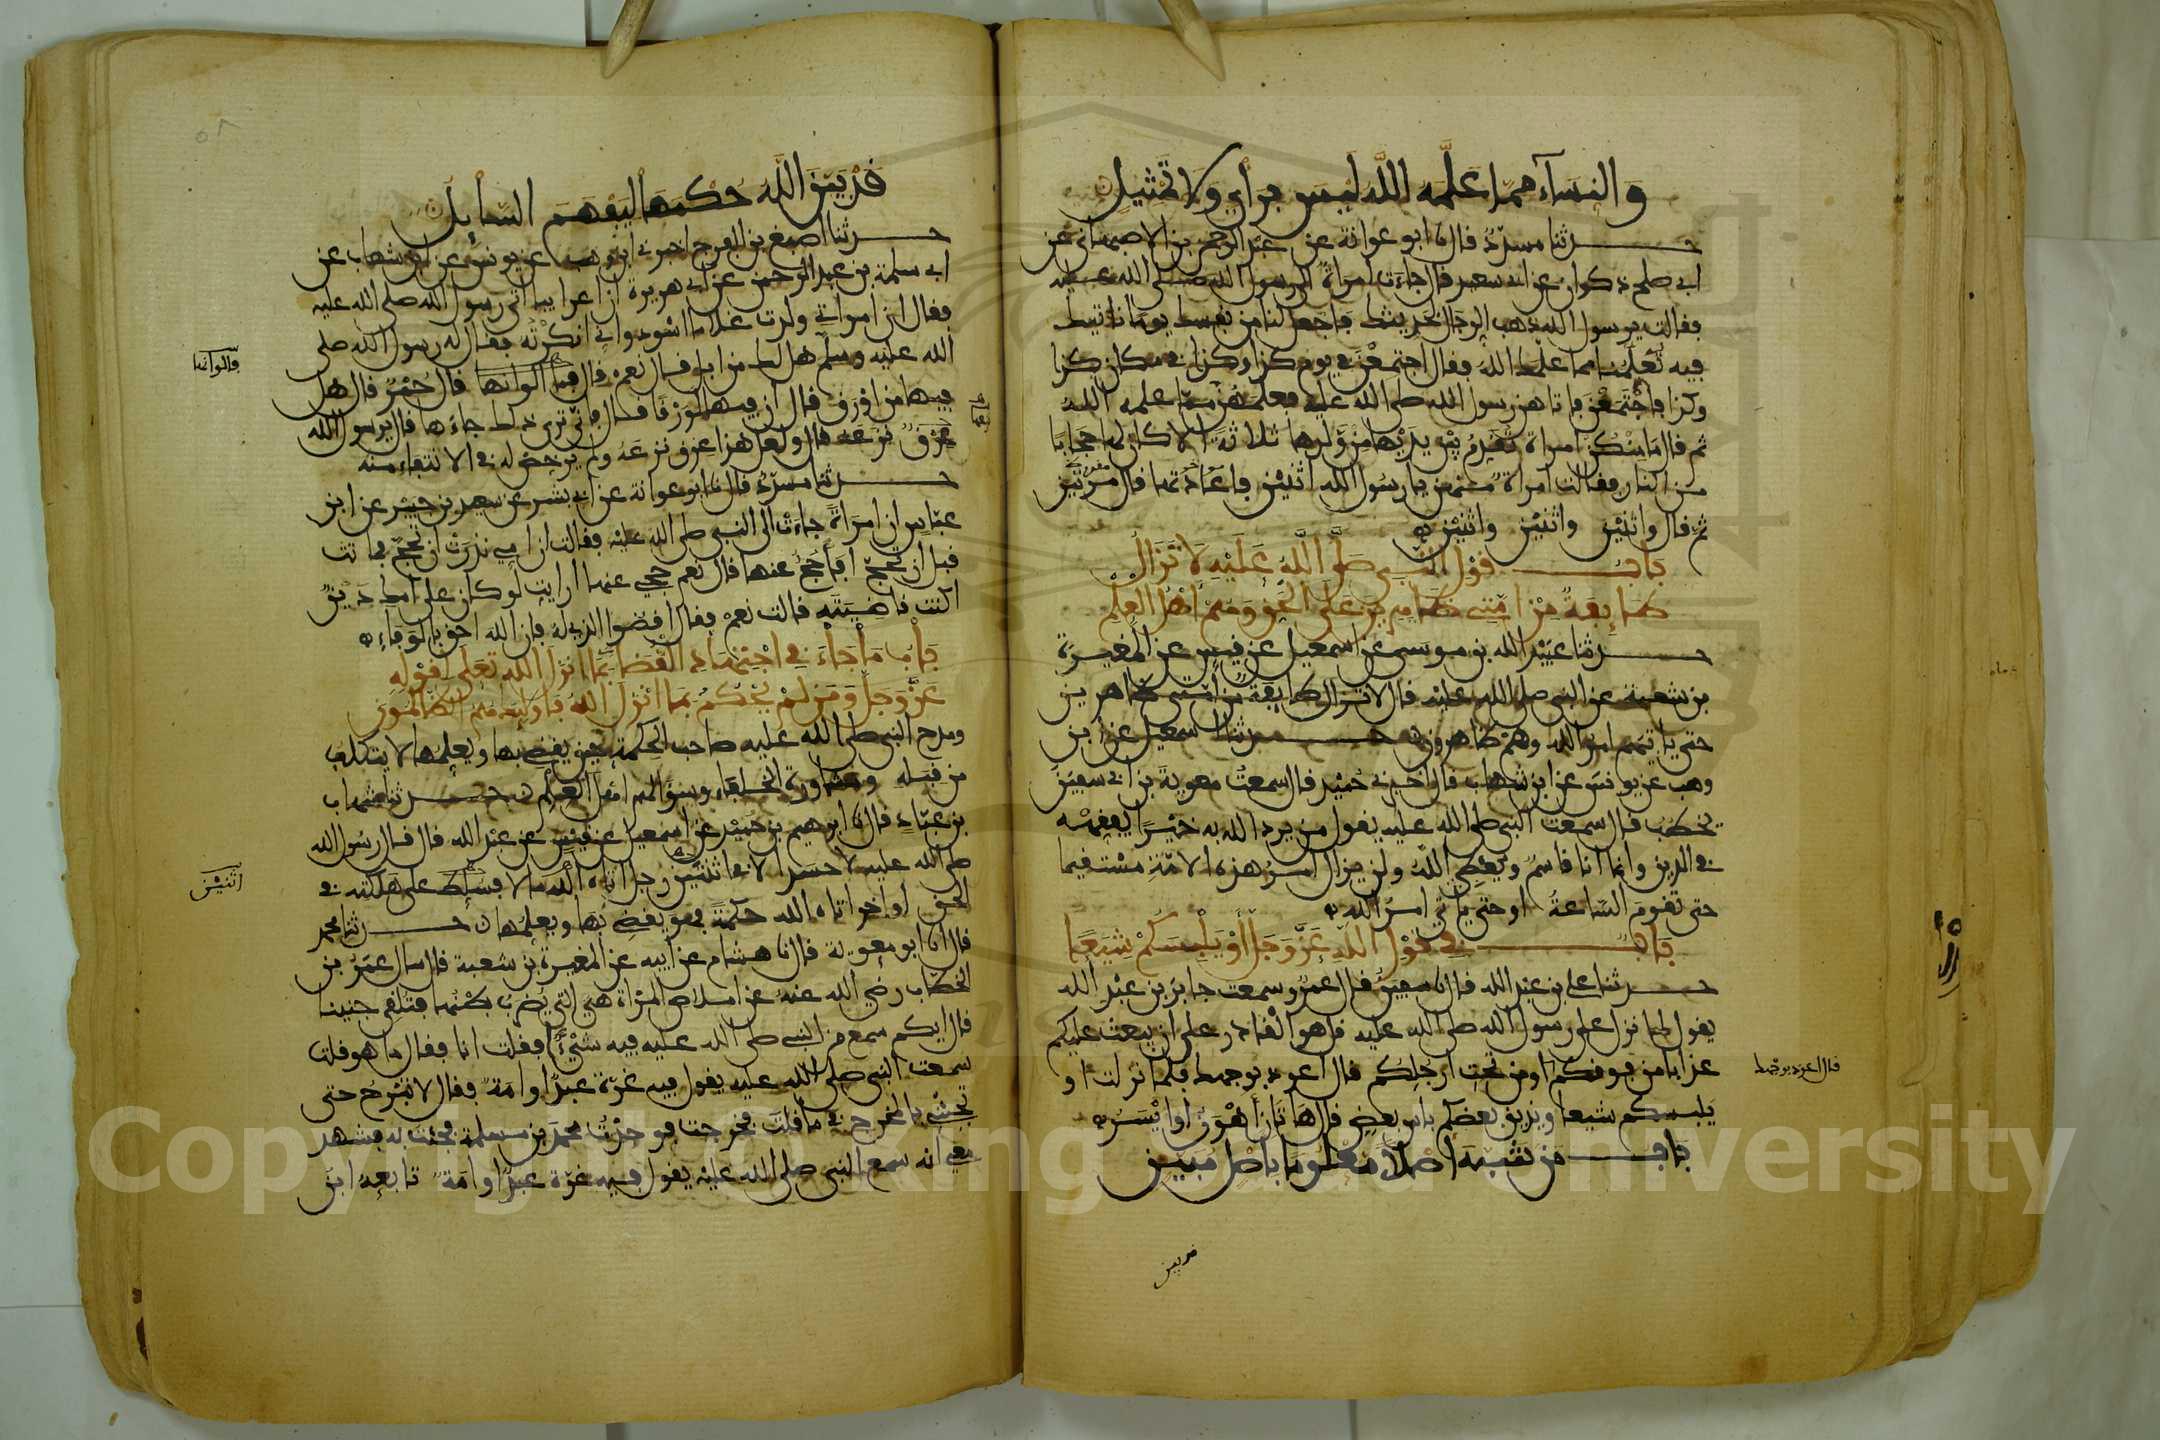 والنساء مما علمه الله ليس برأي ولا تمثيل
حدثنا مسدد قال نا ابو عوانة عن عبد الرحمن بن الاصبهاني عن
ابي صلح ذكوان عن ابي سعيد قال جاءت امراة الى رسول الله صلى الله عليه
فقالت يرسول الله ذهب الرجال بحديثك فاجعل لنا من نفسك يوما ناتيك
فيه تعلمنا مما علمك الله فقال اجتمعن في يوم كذا وكذا في مكان كذا
وكذا فاجتمعن فاتاهن رسول الله صلى الله عليه فعلمهن مما علمه الله
ثم قال ما منكن امراة تقدم بين يديها من ولدها ثلاثة الا كان لها حجابا
من النار فقالت امراة منهن يا رسول الله اثنين فاعادتها قال مرتين
ثم قال واثنين واثنين واثنين
باب قول النبي صلى الله عليه لا تزال
طايفة من امتي ظاهرين على الحق وهم اهل العلم
حدثنا عبيد الله بن موسى عن اسمعيل عن قيس عن المغيرة
بن شعبة عن النبي صلى الله عليه قال لا تزال طايفة من امتي ظاهرين
حتى ياتيهم امر الله وهم ظاهرون حدثنا اسمعيل عن ابن
وهب عن يونس عن ابن شهاب قال اخبرني حميد قال سمعت معوية بن ابي سفين
يخطب قال سمعت النبي صلى الله عليه يقول من يرد الله به خيرا يفقهه
في الدين وانما انا قاسم ويعطي الله ولن يزال امر هذه الامة مستقيما
حتى تقوم الساعة او حتى ياتي امر الله
باب في قول الله عز وجل او يلبسكم شيعا
حدثنا علي بن عبد الله قال نا سفين قال عمرو سمعت جابر بن عبد الله
يقول لما نزل على رسول الله صلى الله عليه قل هو القادر على ان يبعث عليكم
عذابا من فوقكم او من تحت ارجلكم قال اعوذ بوجهك فلما نزلت او
يلبسكم شيعا ويذيق بعضكم باس بعض قال هاتان اهون او ايسر
باب من شبه اصلا معلوما باصل مبين
قال اعوذ بوجهك
قد بين
قد بين الله حكمها ليفهم السايل
حدثنا اصبغ بن الفرج اخبرني ابن وهب عن يونس عن ابن شهاب عن
ابي سلمة بن عبد الرحمن عن ابي هريرة ان اعرابيا اتى رسول الله صلى الله عليه
فقال ان امراتي ولدت غلاما اسود واني انكرته فقال له رسول الله صلى
الله عليه وسلم هل لك من ابل قال نعم قال فما الوانها قال حمر قال هل
فيها من اورق قال ان فيها لورقا قال فانى ترى ذلك جاءها قال يرسول الله
عرق نزعه قال ولعل هذا عرق نزعه ولم يرخص له في الانتفاء منه
حدثنا مسدد قال نا ابو عوانة عن ابي بشر عن سعيد بن جبير عن ابن
عباس ان امراة جاءت الى النبي صلى الله عليه فقالت ان امي نذرت ان تحج فماتت
قبل ان تحج افاحج عنها قال نعم حجي عنها ارايت لو كان على امك دين
اكنت قاضيته قالت نعم فقال اقضوا الذي له فان الله احق بالوفاء
باب ما جاء في اجتهاد القضا بما انزل الله تعلى لقوله
عز وجل ومن لم يحكم بما انزل الله فاوليك هم الظالمون
ومدح النبي صلى الله عليه صاحب الحكمة حين يقضي بها ويعلمها لا يتكلف
من قبله ومشاورة الخلفاء وسؤالهم اهل العلم حدثنا شهاب
بن عباد قال نا ابرهيم بن حميد عن اسمعيل عن قيس عن عبد الله قال قال رسول الله
صلى الله عليه لا حسد الا في اثنتين رجل اتاه الله مالا فسلط على هلكته في
الحق او اخر اتاه الله حكمة فهو يقضي بها ويعلمها حدثنا محمد
قال انا ابو معوية قال نا هشام عن ابيه عن المغيرة بن شعبة قال سال عمر بن
الخطاب رضي الله عنه عن املاص المراة هي التي يضرب بطنها فتلقي جنينا
قال ايكم سمع من النبي صلى الله عليه فيه شيئا فقلت انا فقال ما هو قلت
سمعت النبي صلى الله عليه يقول فيه غرة عبد او امة فقال لا تبرح حتى
تجئني بالمخرج فيما قلت فخرجت فوجدت محمد بن مسلمة فجئت به فشهد
معي انه سمع النبي صلى الله عليه يقول فيه غرة عبد او امة تابعه ابن
فالوانها
اثنين
Copyright © King Saud University